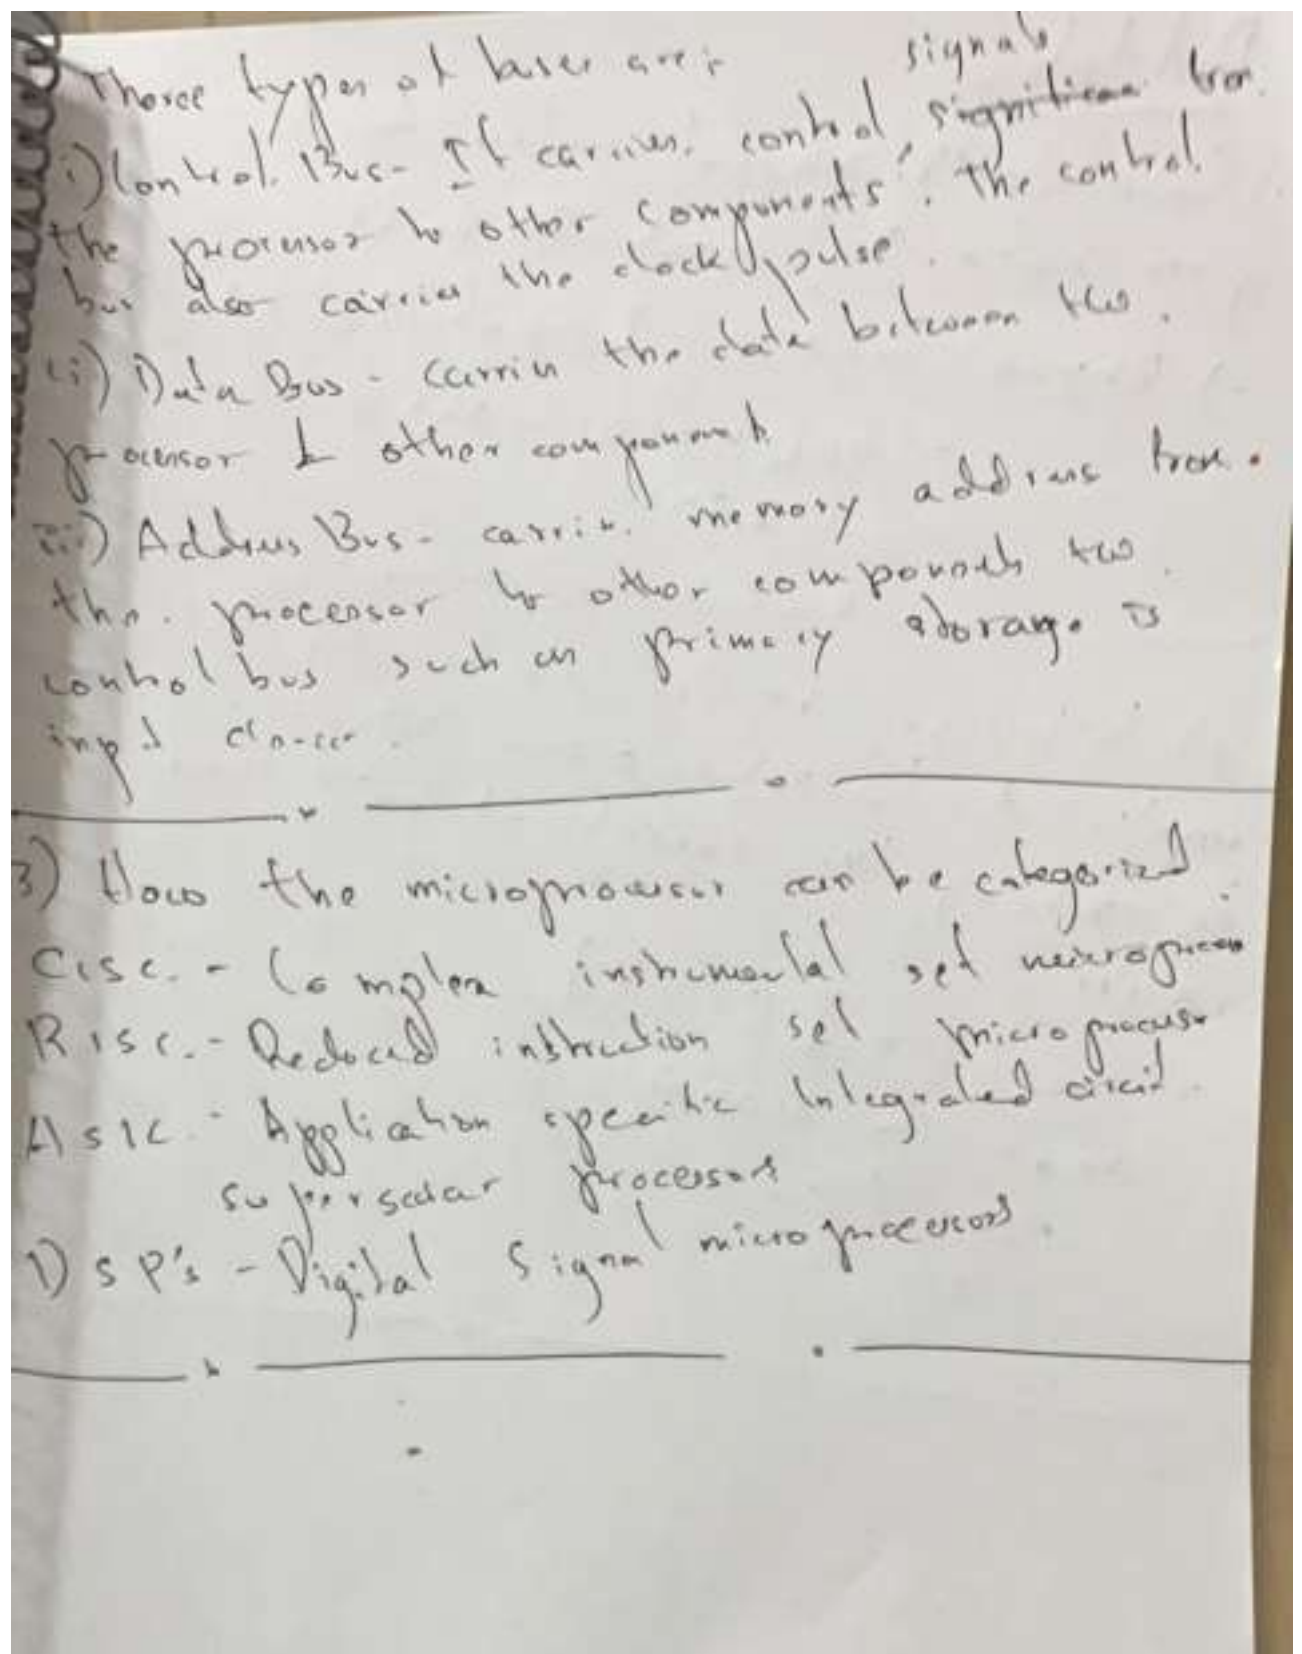 Three types of buses are:
i) Control Bus - It carries control signals from
the processor to other components. The control
bus also carries the clock pulse.
ii) Data Bus - carries the data between the
processor & other components
iii) Address Bus - carries memory address from
the processor to other components
control bus such as primary storage
input
3) How the microprocessor can be categorized
CISC. - Complex instrumental set microprocessor
RISC. - Reduced instruction set microprocessor
ASIC - Application specific Integrated circuit
superscalar processors
DSP's - Digital Signal microprocessors